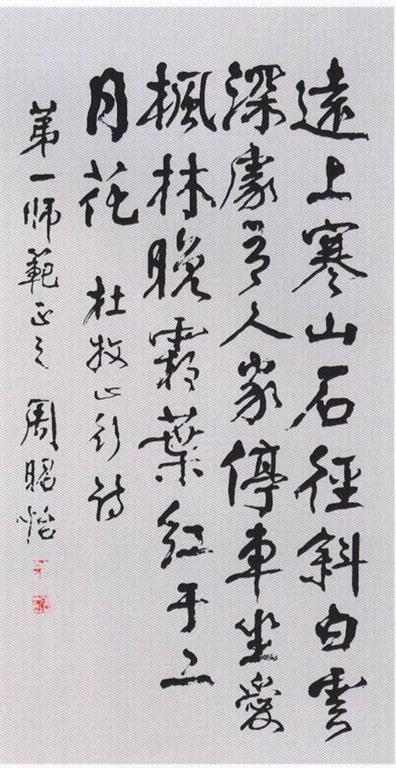 遠上寒山石徑斜白雲
深處有人家停車坐愛
楓林晚霜葉紅于二
月花 杜牧山行詩
第一師範正之 周昭怡